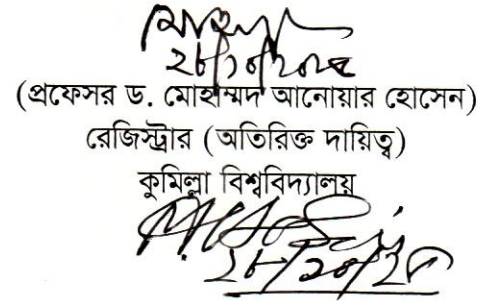 ২৮/১০/২০২৫
(প্রফেসর ড. মোহাম্মদ আনোয়ার হোসেন)
রেজিস্ট্রার (অতিরিক্ত দায়িত্ব)
কুমিল্লা বিশ্ববিদ্যালয়
২৮/১০/২৫